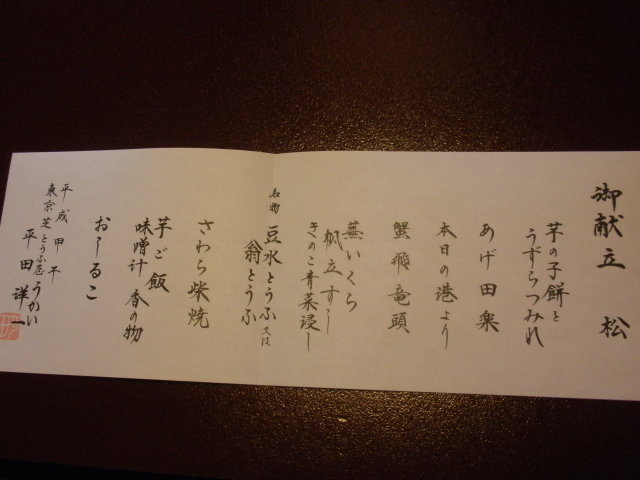 御献立 松
芋の子餅と
うずらつみれ
あげ田楽
本日の港より
蟹飛竜頭
蕪いくら
帆立すし
きのこ青菜浸し
名物 豆水とうふ 又は
翁とうふ
さわら柴焼
芋ご飯
味噌汁 香の物
おしるこ
平成甲午
東京芝とうふ屋うかい
平田祥一